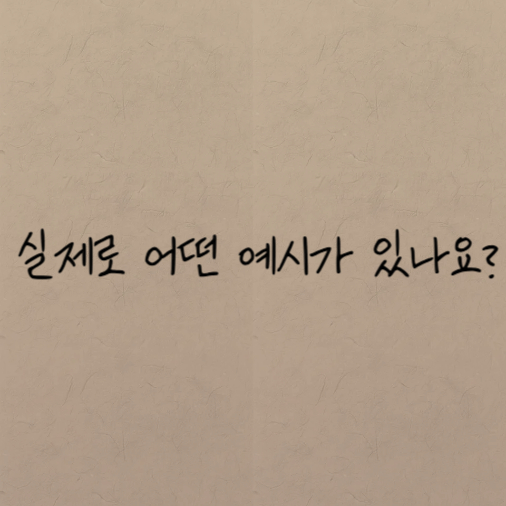 실제로 어떤 예시가 있나요?